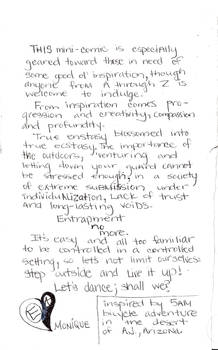 THIS mini-comic is especially
geared toward those in need of
some good ol' inspiration, though
anyone from A through Z is
welcome to indulge.
From inspiration comes pro-
gression and creativity, compassion
and profundity.
True enstasy blossomed into
true ecstasy. The importance of
the outdoors, nurturing and
letting down your guard cannot
be stressed enough, in a society
of extreme submission, under
individuNization, lack of trust
and long-lasting voids.
Entrapment
no
more.
It's easy and all too familiar
to be controlled in a controlled
setting, so lets not limit ourselves:
step outside and live it up!
Let's dance; shall we?
MONIQUE
inspired by 5AM
bicycle adventure
in the desert
of A.J., Arizona